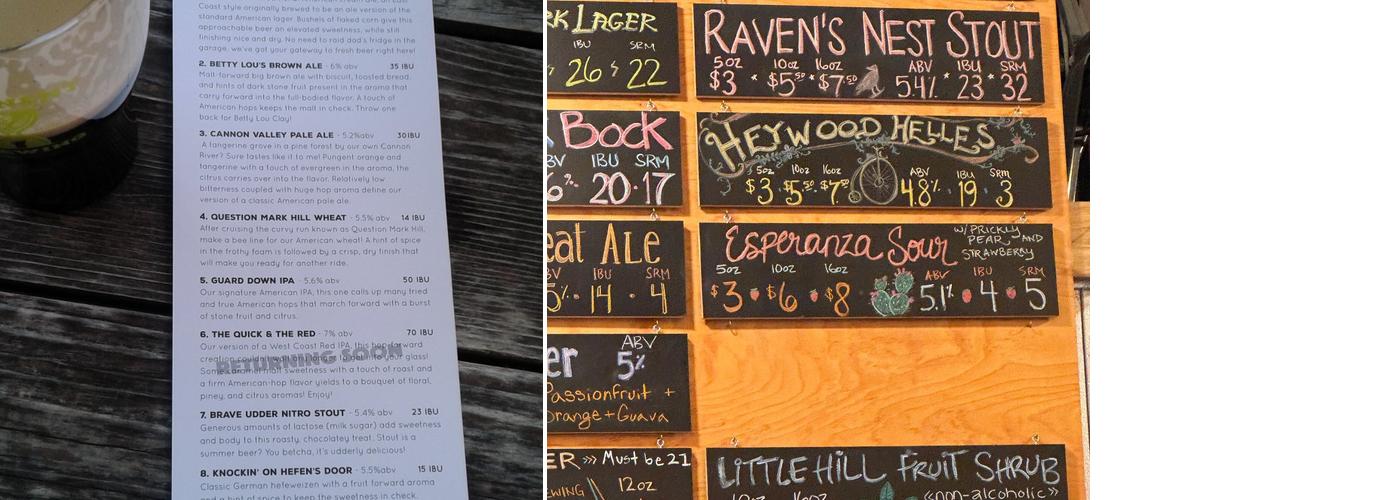 Coast style originally brewed to be an ale version of the
standard American lager. Bushels of flaked corn give this
approachable beer an elevated sweetness, while still
finishing nice and dry. No need to raid dad's fridge in the
garage, we've got your gateway to fresh beer right here!
2. BETTY LOU'S BROWN ALE - 6% abv 35 IBU
Malt-forward big brown ale with biscuit, toasted bread,
and hints of dark stone fruit present in the aroma that
carry forward into the full-bodied flavor. A touch of
American hops keeps the malt in check. Throw one
back for Betty Lou Clay!
3. CANNON VALLEY PALE ALE - 5.2%abv 30IBU
A tangerine grove in a pine forest by our own Cannon
River? Sure tastes like it to me! Pungent orange and
tangerine with a touch of evergreen in the aroma, the
citrus carries over into the flavor. Relatively low
bitterness coupled with huge hop aroma define our
version of a classic American pale ale.
4. QUESTION MARK HILL WHEAT - 5.5% abv 14 IBU
After cruising the curvy run known as Question Mark Hill,
make a bee line for our American wheat! A hint of spice
in the frothy foam is followed by a crisp, dry finish that
will make you ready for another ride.
5. GUARD DOWN IPA - 5.6% abv 50 IBU
Our signature American IPA, this one calls up many tried
and true American hops that march forward with a burst
of stone fruit and citrus.
6. THE QUICK & THE RED - 7% abv 70 IBU
Our version of a West Coast Red IPA, this hop-forward
creation couldn't wait to get into your glass!
RETURNING SOON
Some caramel malt sweetness with a touch of roast and
a firm American-hop flavor yields to a bouquet of floral,
piney, and citrus aromas! Enjoy!
7. BRAVE UDDER NITRO STOUT - 5.4% abv 23 IBU
Generous amounts of lactose (milk sugar) add sweetness
and body to this roasty, chocolatey treat. Stout is a
summer beer? You betcha, it's udderly delicious!
8. KNOCKIN' ON HEFEN'S DOOR - 5.5%abv 15 IBU
Classic German hefeweizen with a fruit forward aroma
and a hint of spice to keep the sweetness in check.
RK LAGER
IBU SRM
26 22
BOCK
ABV IBU SRM
6% 20·17
eat ALE
BV IBU SRM
5%·14·4
er ABV
5%
Passionfruit +
Orange+Guava
ER >>> Must be 21
EWING 12oz
RAVEN'S NEST STOUT
5oz 10oz 16oz ABV IBU SRM
$3 * $5.50 * $7.50 5.4% * 23 * 32
HEYWOOD HELLES
5oz 10oz 16oz ABV IBU SRM
$3 · $5.50 · $7.50 4.8% · 19 · 3
Esperanza Sour W/ PRICKLY
PEAR AND
STRAWBERRY
5oz 10oz 16oz ABV IBU SRM
$3 $6 $8 5.1% 4 5
LITTLE HILL FRUIT SHRUB
10oz 16oz <<non-alcoholic>>